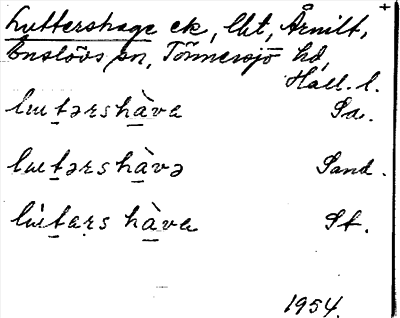 Luttershage ek, lht, Årnilt,
Enslövs sn, Tönnersjö hd,
Hall. l.
lutərshàva Sa.
lutərshàvə Sand.
lùtars hàva St.
1954.